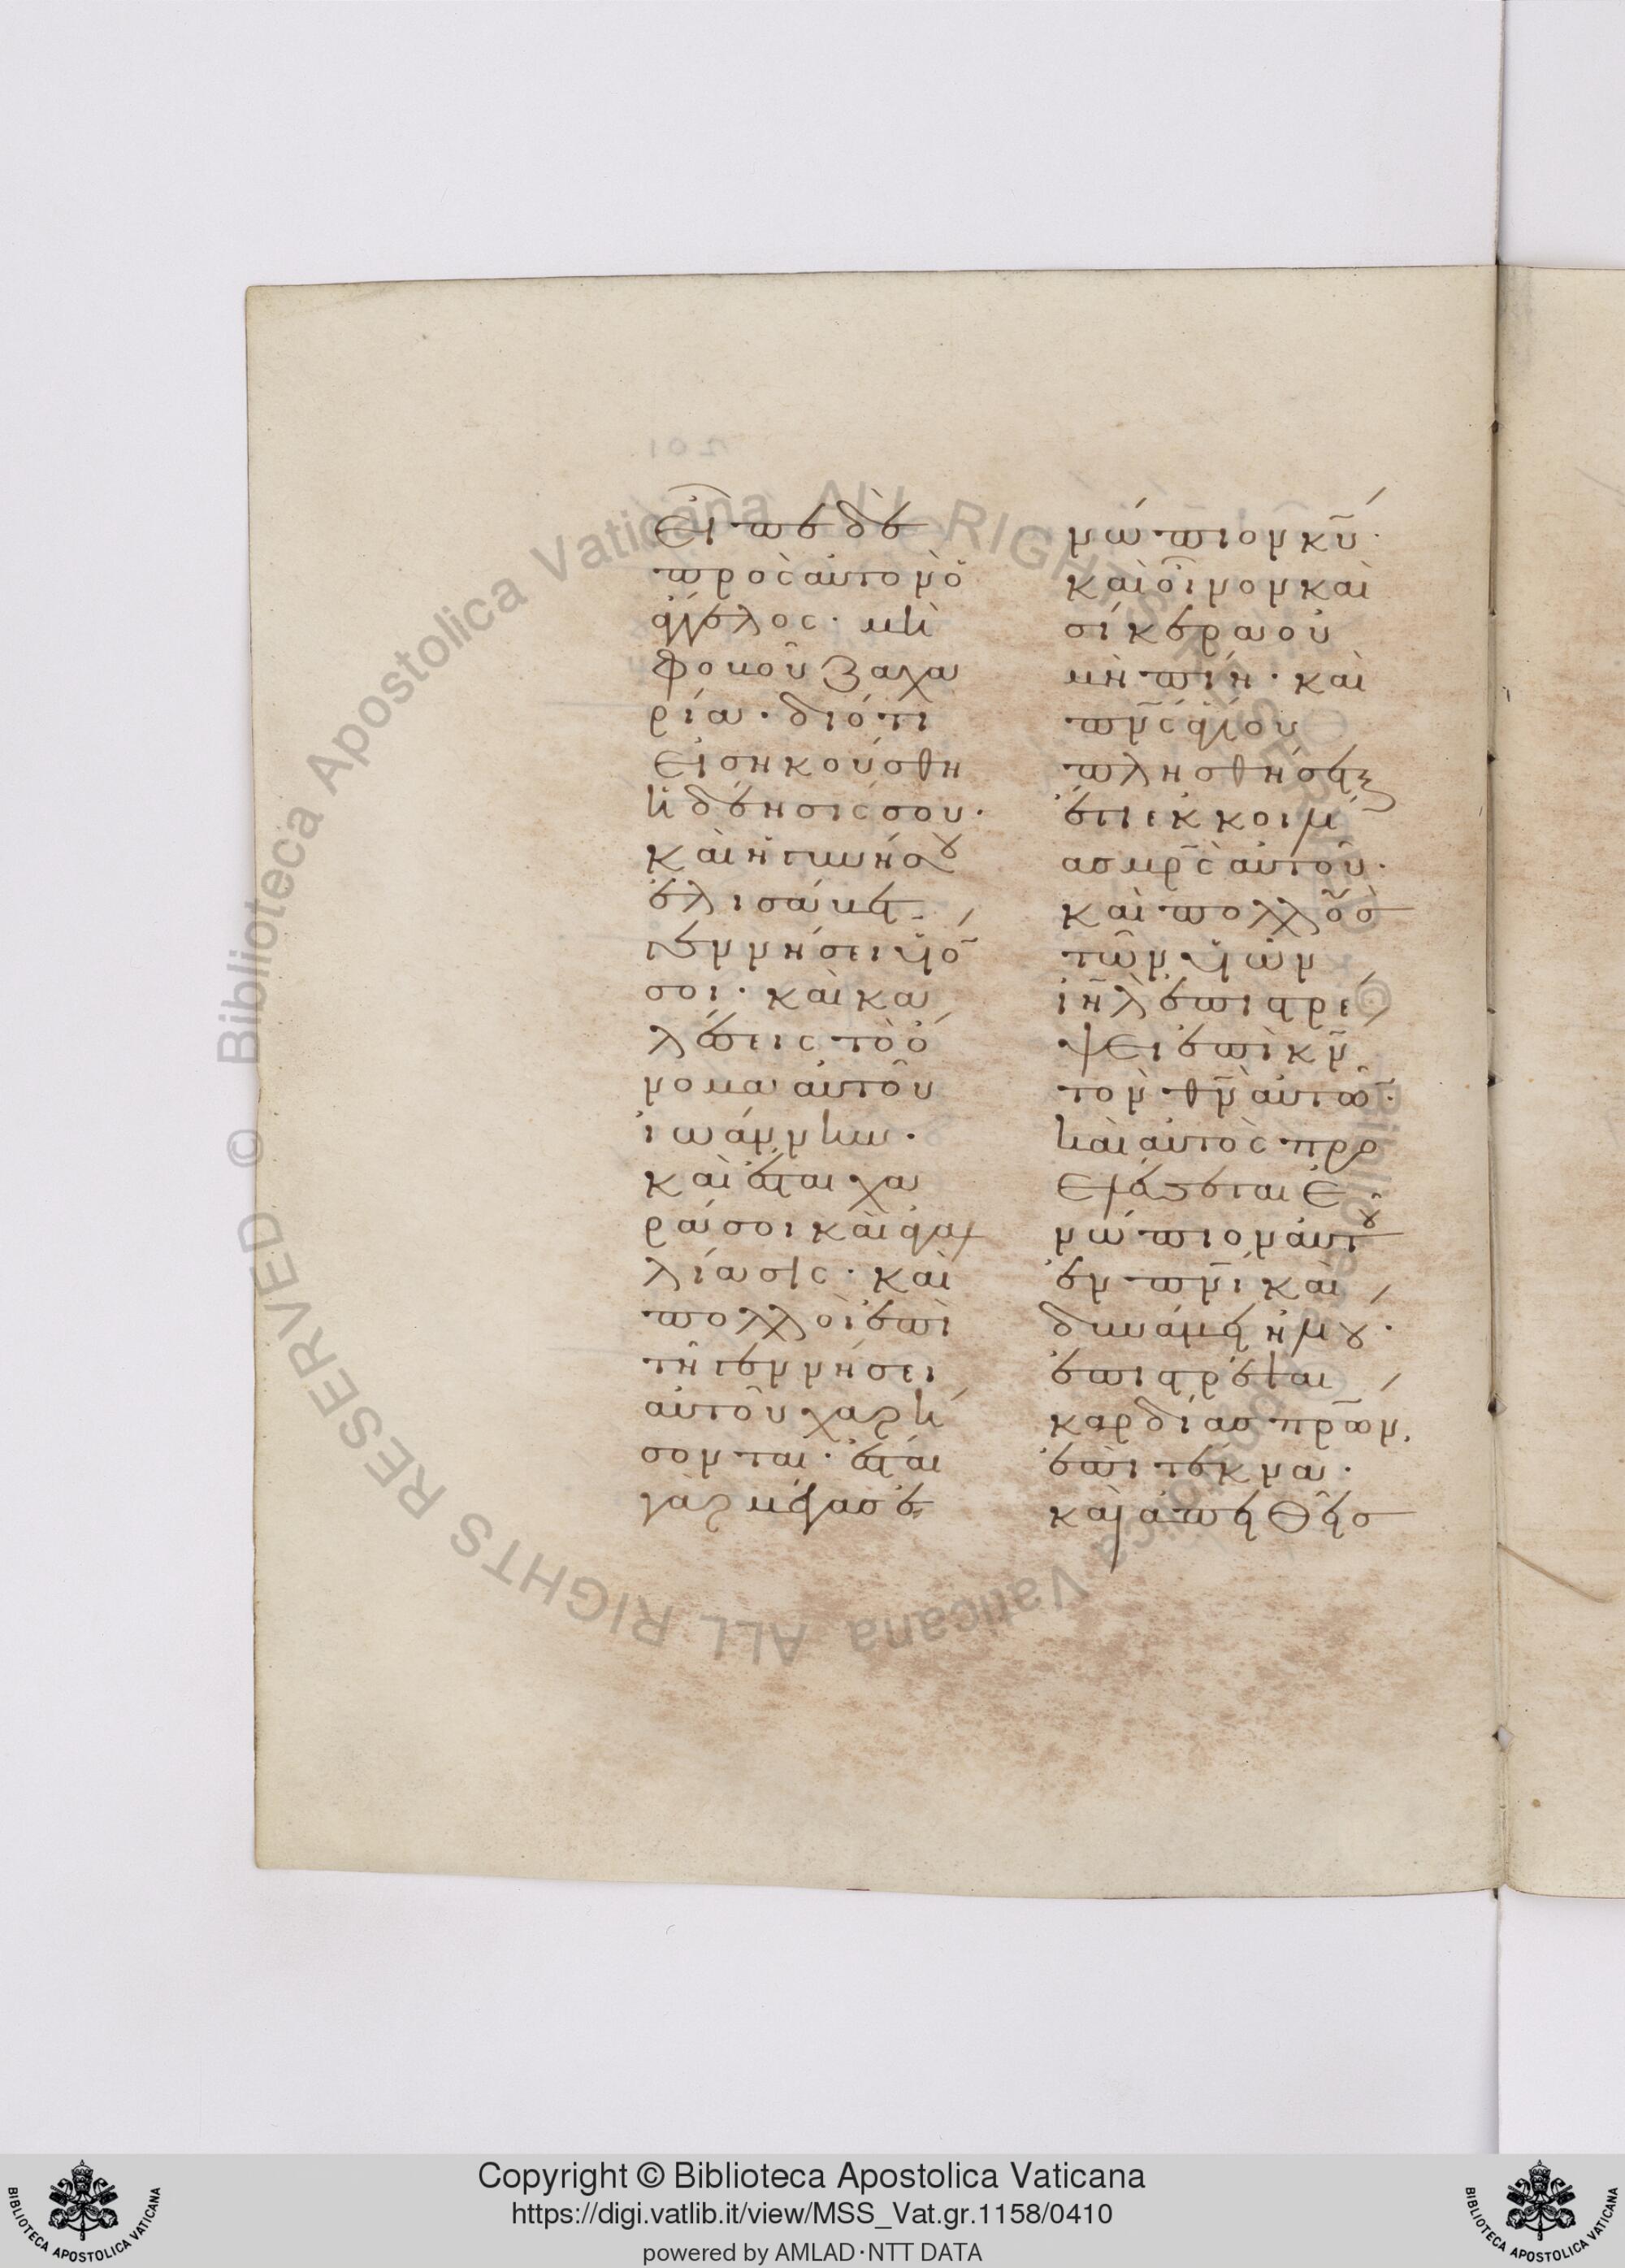 εἶπε δὲ
πρὸς αὐτὸν ὁ
ἄγγελος· μὴ
φοβοῦ ζαχα
ρία· διότι
εἰσηκούσθη
ἡ δέησις σου·
καὶ ἡ γυνή σου
ἐλισάβετ
γεννήσει υἱόν
σοι· καὶ κα
λέσεις τὸ ὄ
νομα αὐτοῦ
ἰωάννην·
καὶ ἔσται χα
ρά σοι καὶ ἀγαλ
λίασις· καὶ
πολλοὶ ἐπὶ
τῇ γεννήσει
αὐτοῦ χαρή
σονται· ἔσται
γὰρ μέγας ἐ
νώπιον κ̅υ̅·
καὶ οἶνον καὶ
σίκερα οὐ
μὴ πίῃ· καὶ
π̅ν̅ς̅ ἁγίου
πλησθήσεται
ἔτι ἐκ κοιλί
ας μ̅ρ̅ς̅ αὐτοῦ·
καὶ πολλοὺς
τῶν υἱῶν
ἰ̅η̅λ̅ ἐπιστρέ
ψει ἐπὶ κ̅ν̅
τὸν θ̅ν̅ αὐτῶν·
καὶ αὐτὸς προ
ελεύσεται ἐ
νώπιον αὐτοῦ
ἐν π̅ν̅ι̅ καὶ
δυνάμει ἠλιού·
ἐπιστρέψαι
καρδίας π̅ρ̅ω̅ν̅
ἐπὶ τέκνα·
καὶ ἀπειθεῖς
Copyright © Biblioteca Apostolica Vaticana
https://digi.vatlib.it/view/MSS_Vat.gr.1158/0410
powered by AMLAD·NTT DATA